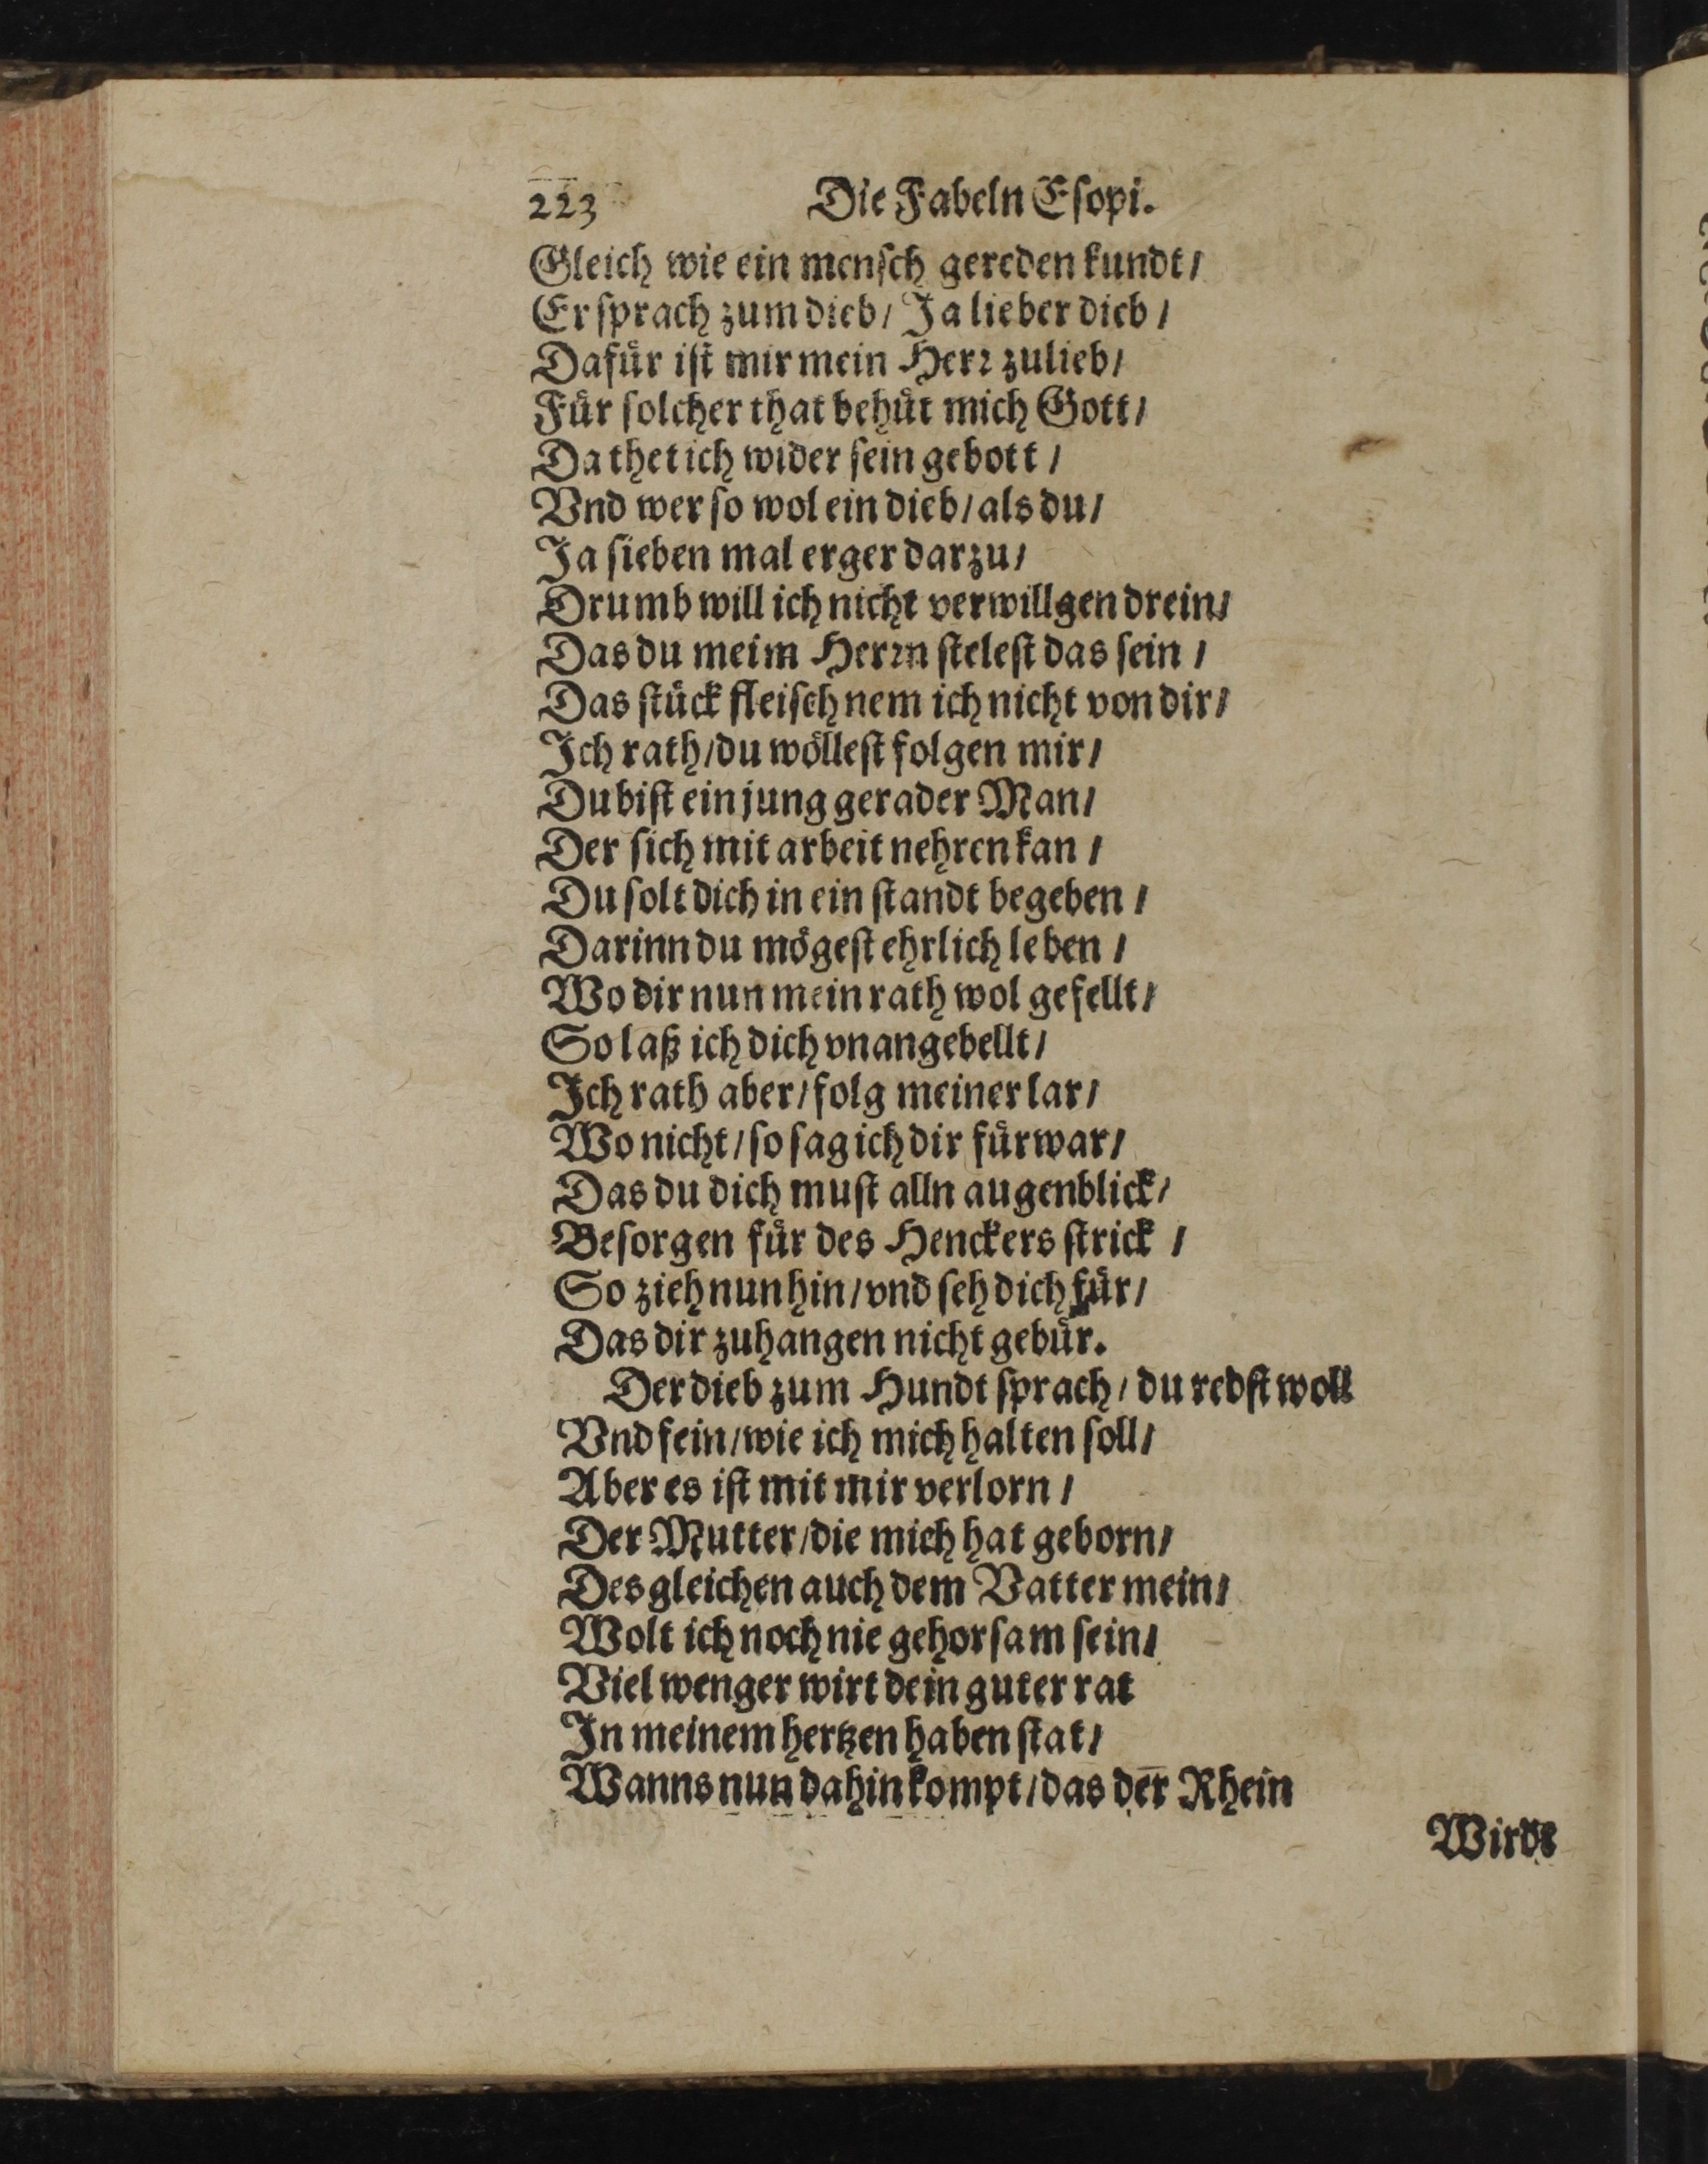 223 Die Fabeln Eſopi.
Gleich wie ein menſch gereden kundt/
Er ſprach zum dieb/ Ja lieber dieb/
Dafuͤr iſt mir mein Herꝛ zulieb/
Fuͤr ſolcher that behuͤt mich Gott/
Da thet ich wider ſein gebott/
Vnd wer ſo wol ein dieb/ als du/
Ja ſieben mal erger darzu/
Drumb will ich nicht verwillgen drein/
Das du meim Herꝛn ſteleſt das ſein/
Das ſtuͤck fleiſch nem ich nicht von dir/
Ich rath/ du woͤlleſt folgen mir/
Du biſt ein jung gerader Man/
Der ſich mit arbeit nehren kan/
Du ſolt dich in ein ſtandt begeben/
Darinn du moͤgeſt ehrlich leben/
Wo dir nun mein rath wol gefellt/
So laß ich dich vnangebellt/
Ich rath aber/ folg meiner lar/
Wo nicht/ ſo ſag ich dir fuͤrwar/
Das du dich muſt alln augenblick/
Beſorgen fuͤr des Henckers ſtrick/
So zieh nun hin/ vnd ſeh dich fuͤr/
Das dir zuhangen nicht gebuͤr.
Der dieb zum Hundt ſprach/ du redſt woll
Vnd fein/ wie ich mich halten ſoll/
Aber es iſt mit mir verlorn/
Der Mutter/ die mich hat geborn/
Des gleichen auch dem Vatter mein/
Wolt ich noch nie gehorſam ſein/
Viel wenger wirt dein guter rat
In meinem hertzen haben ſtat/
Wanns nun dahin kompt/ das der Rhein
Wirdt